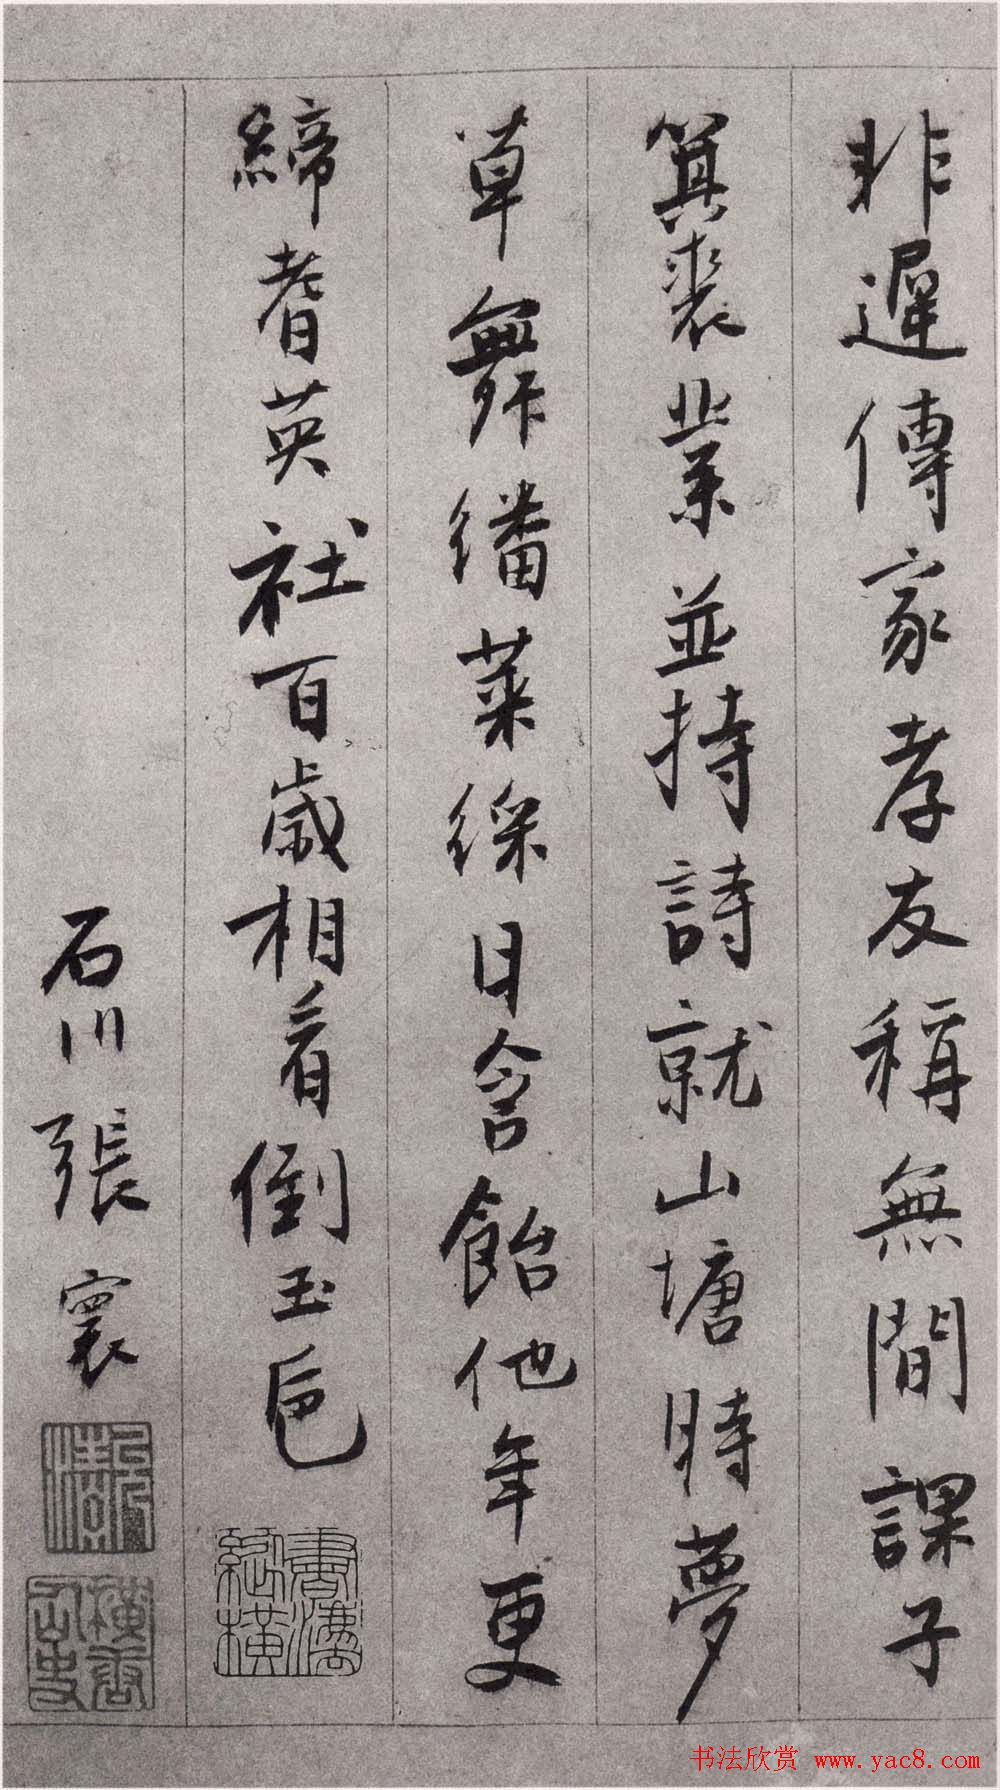 非遲傳家孝友稱無間課子
箕裘業並持詩就山塘時夢
草舞繙菜綵日含飴他年更
締耆英社百歲相看倒玉卮
石川張寰
書法欣赏 www.yac8.com